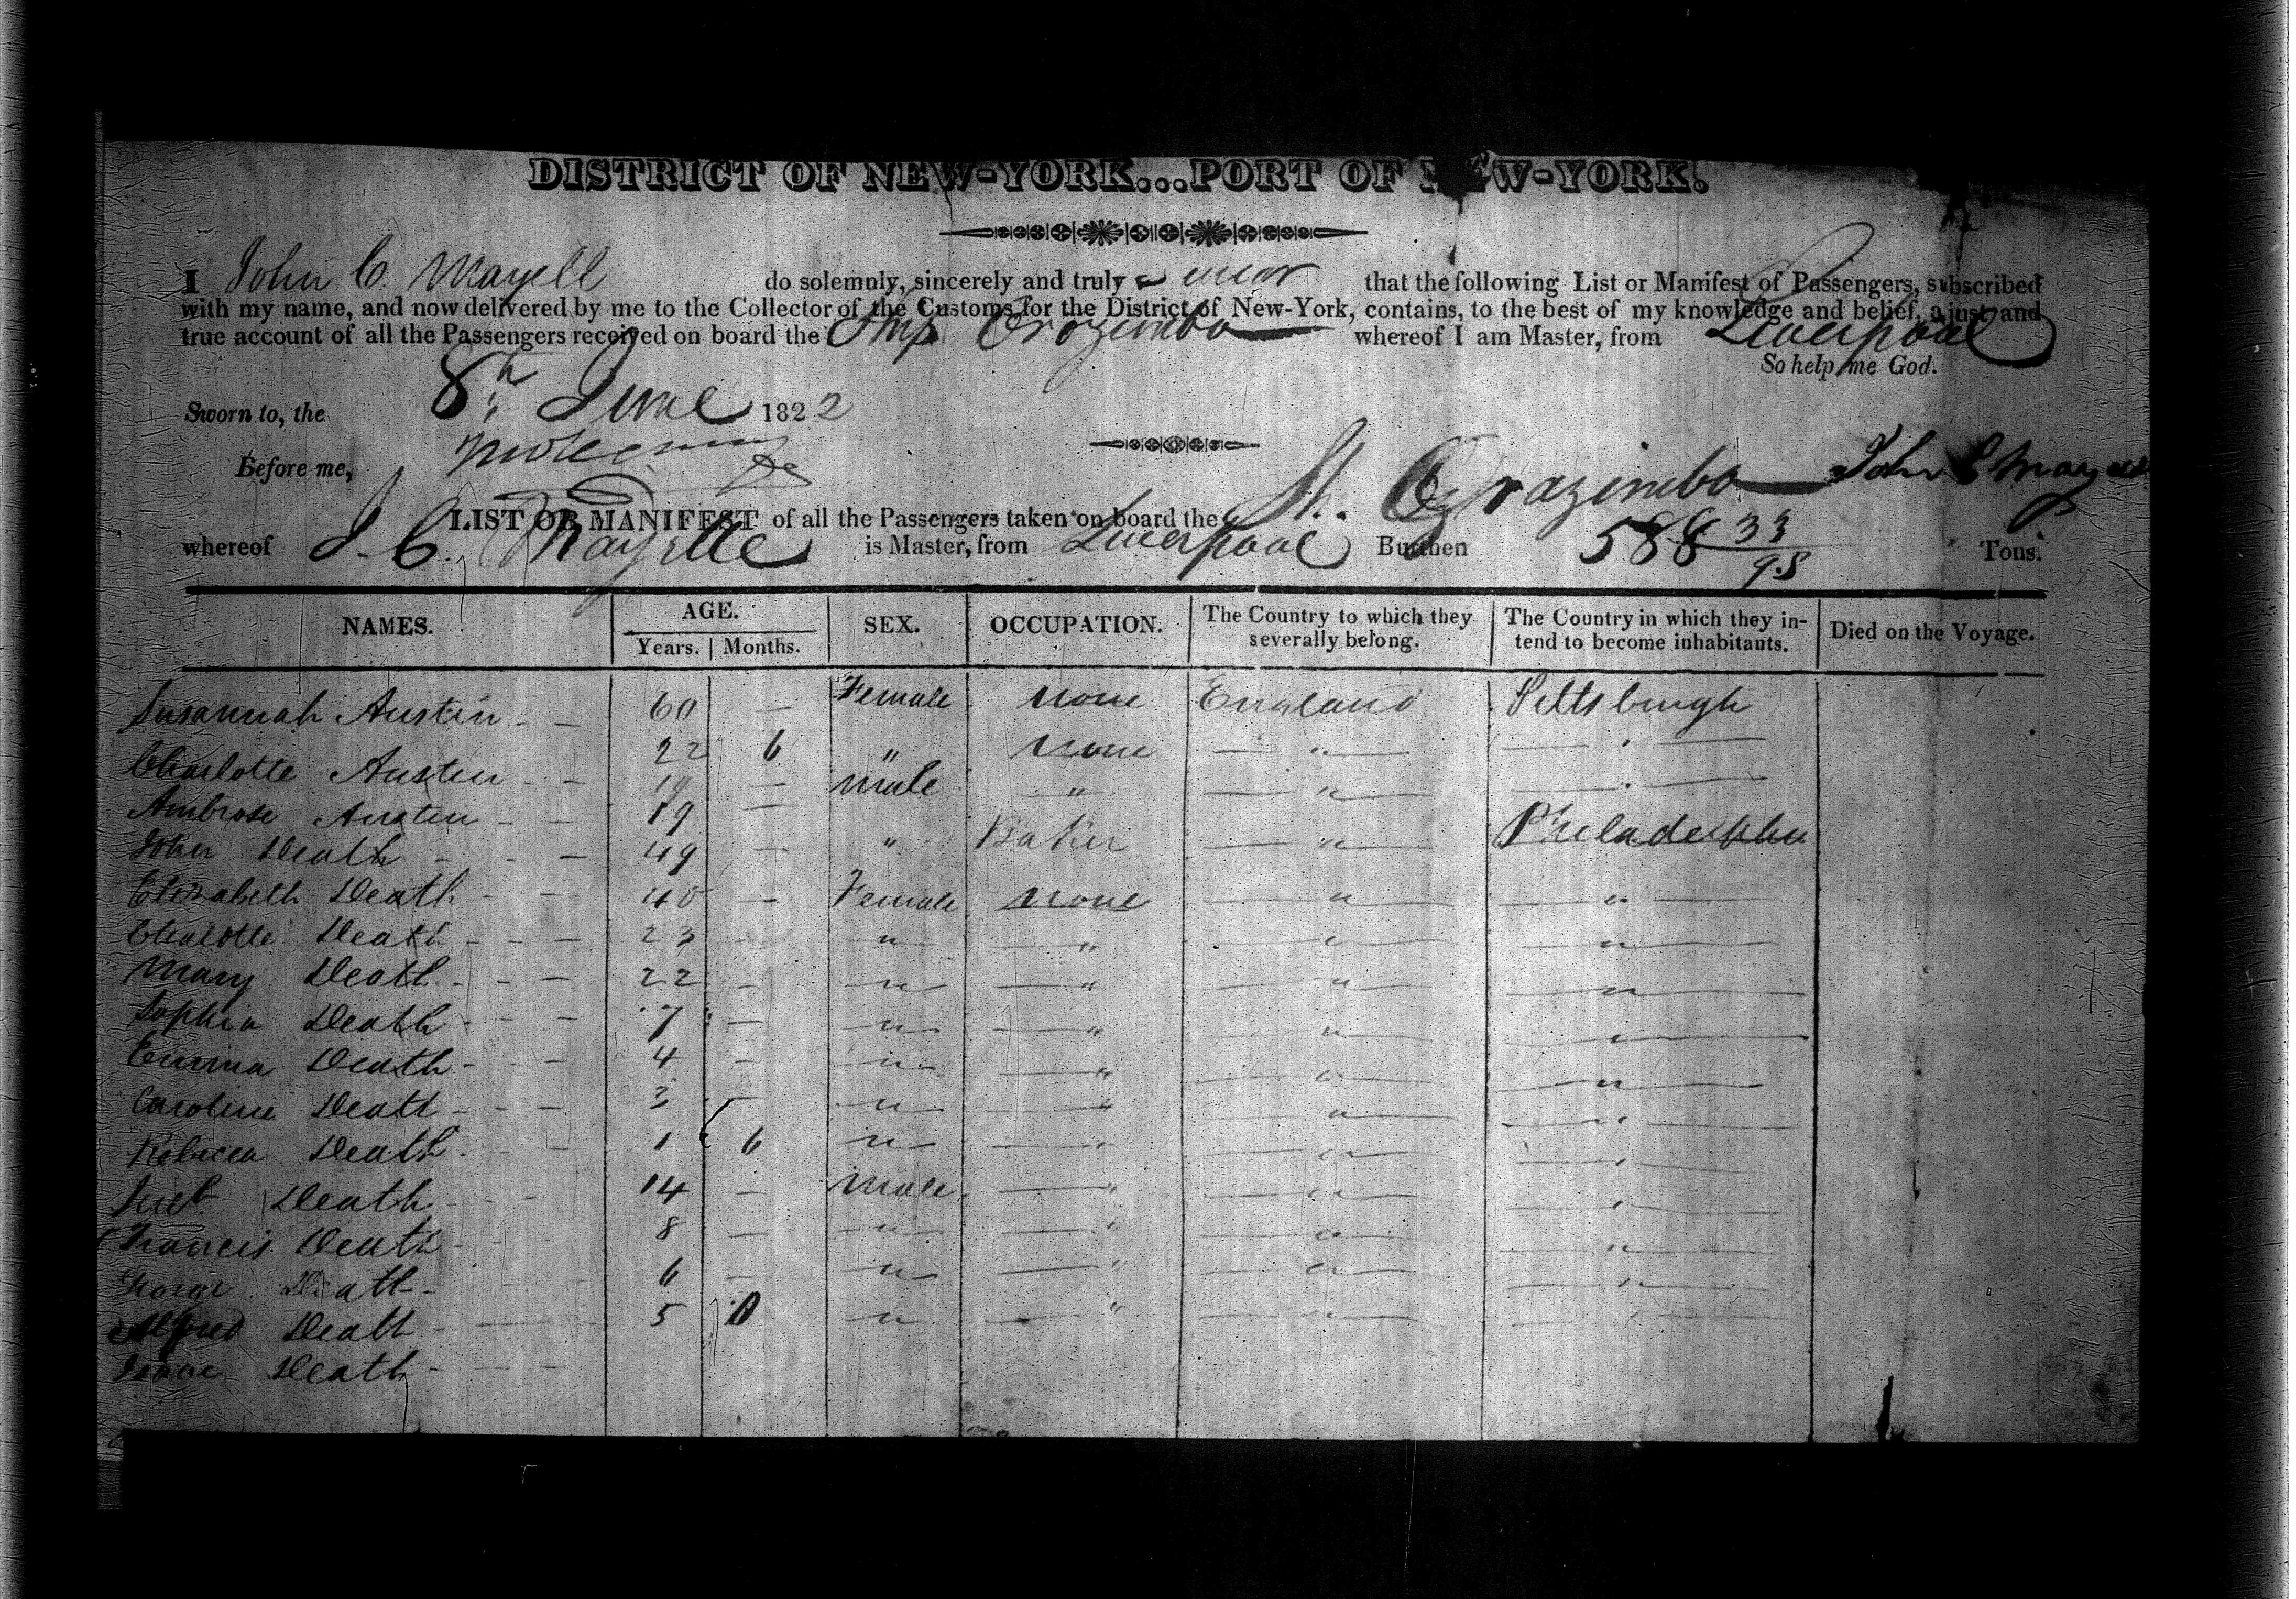 DISTRICT OF NEW-YORK...PORT OF NEW-YORK.
I John C. Mayell do solemnly, sincerely and truly swear that the following List or Manifest of Passengers, subscribed
with my name, and now delivered by me to the Collector of the Customs for the District of New-York, contains, to the best of my knowledge and belief, a just and
true account of all the Passengers received on board the Ship Orozimbo whereof I am Master, from Liverpool
So help me God.
Sworn to, the 8th June 1822
Before me, John C Mayell
LIST OR MANIFEST of all the Passengers taken on board the Sh. Orazimbo
whereof J. C. Mayelle is Master, from Liverpool Burthen 588 33/95 Tons.
NAMES. AGE. SEX. OCCUPATION. The Country to which they severally belong. The Country in which they intend to become inhabitants. Died on the Voyage.
Years. Months.
Susannah Austin - - 60 — Female none England Pittsburgh
Charlotte Austin - - 22 6 " none — " — — " —
Ambrose Austen - - 19 — male " — " — — " —
19 —
John Death - - - 49 — " Baker — " — Philadelphia
Elizabeth Death - - 40 — Female none — " — — " —
Charlotte Death - - - 23 - " — " — " — — " —
Mary Death - - - 22 - " — " — " — — " —
Sophia Death - - - 7 — " — " — " — — " —
Emma Death - - - 4 - " — " — " — — " —
Caroline Death - - - 3 — " — " — " — — " —
Rebecca Death - - 1 6 " — " — " — — " —
Death - - 14 — Male — " — " — — " —
Francis Death - - 8 — " — " — " — — " —
George Death - - 6 — " — " — " — — " —
Alfred Death - — 5 " — " — " — — " —
Isaac Death - — -